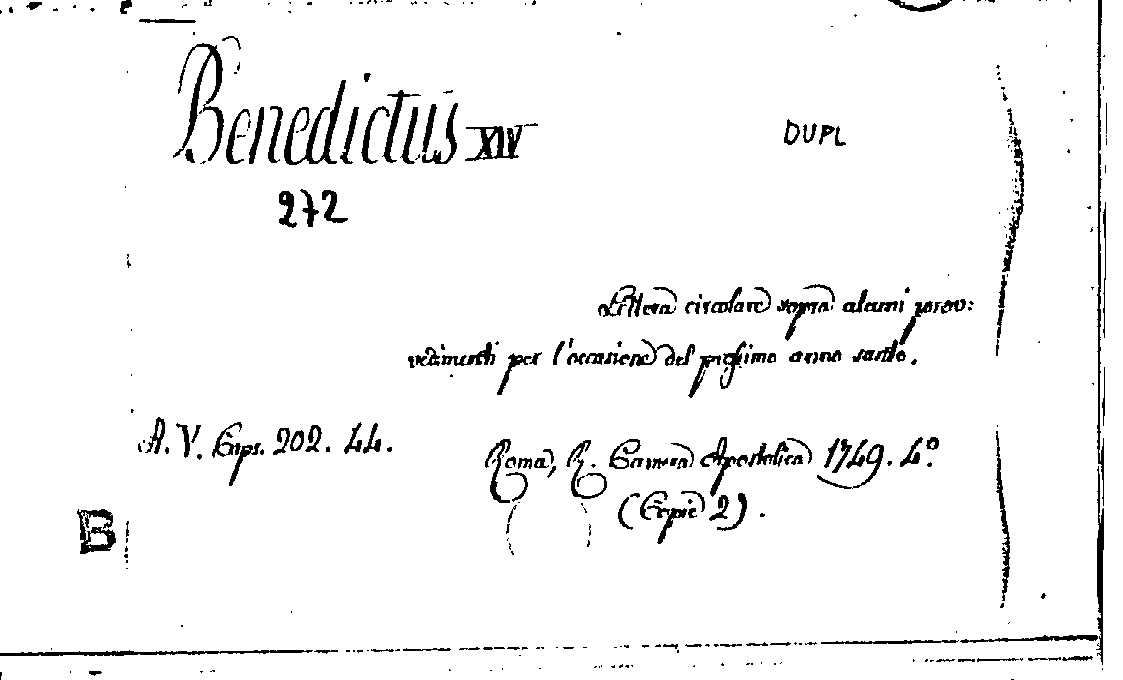 Benedictus XIV
DUPL
272
Lettera circolare sopra alcuni prov:
vedimenti per l'occasione del prossimo anno santo.
A. V. Caps. 202. 44.
Roma, R. Camera Apostolica 1749. 4º
(Copie 2).
B